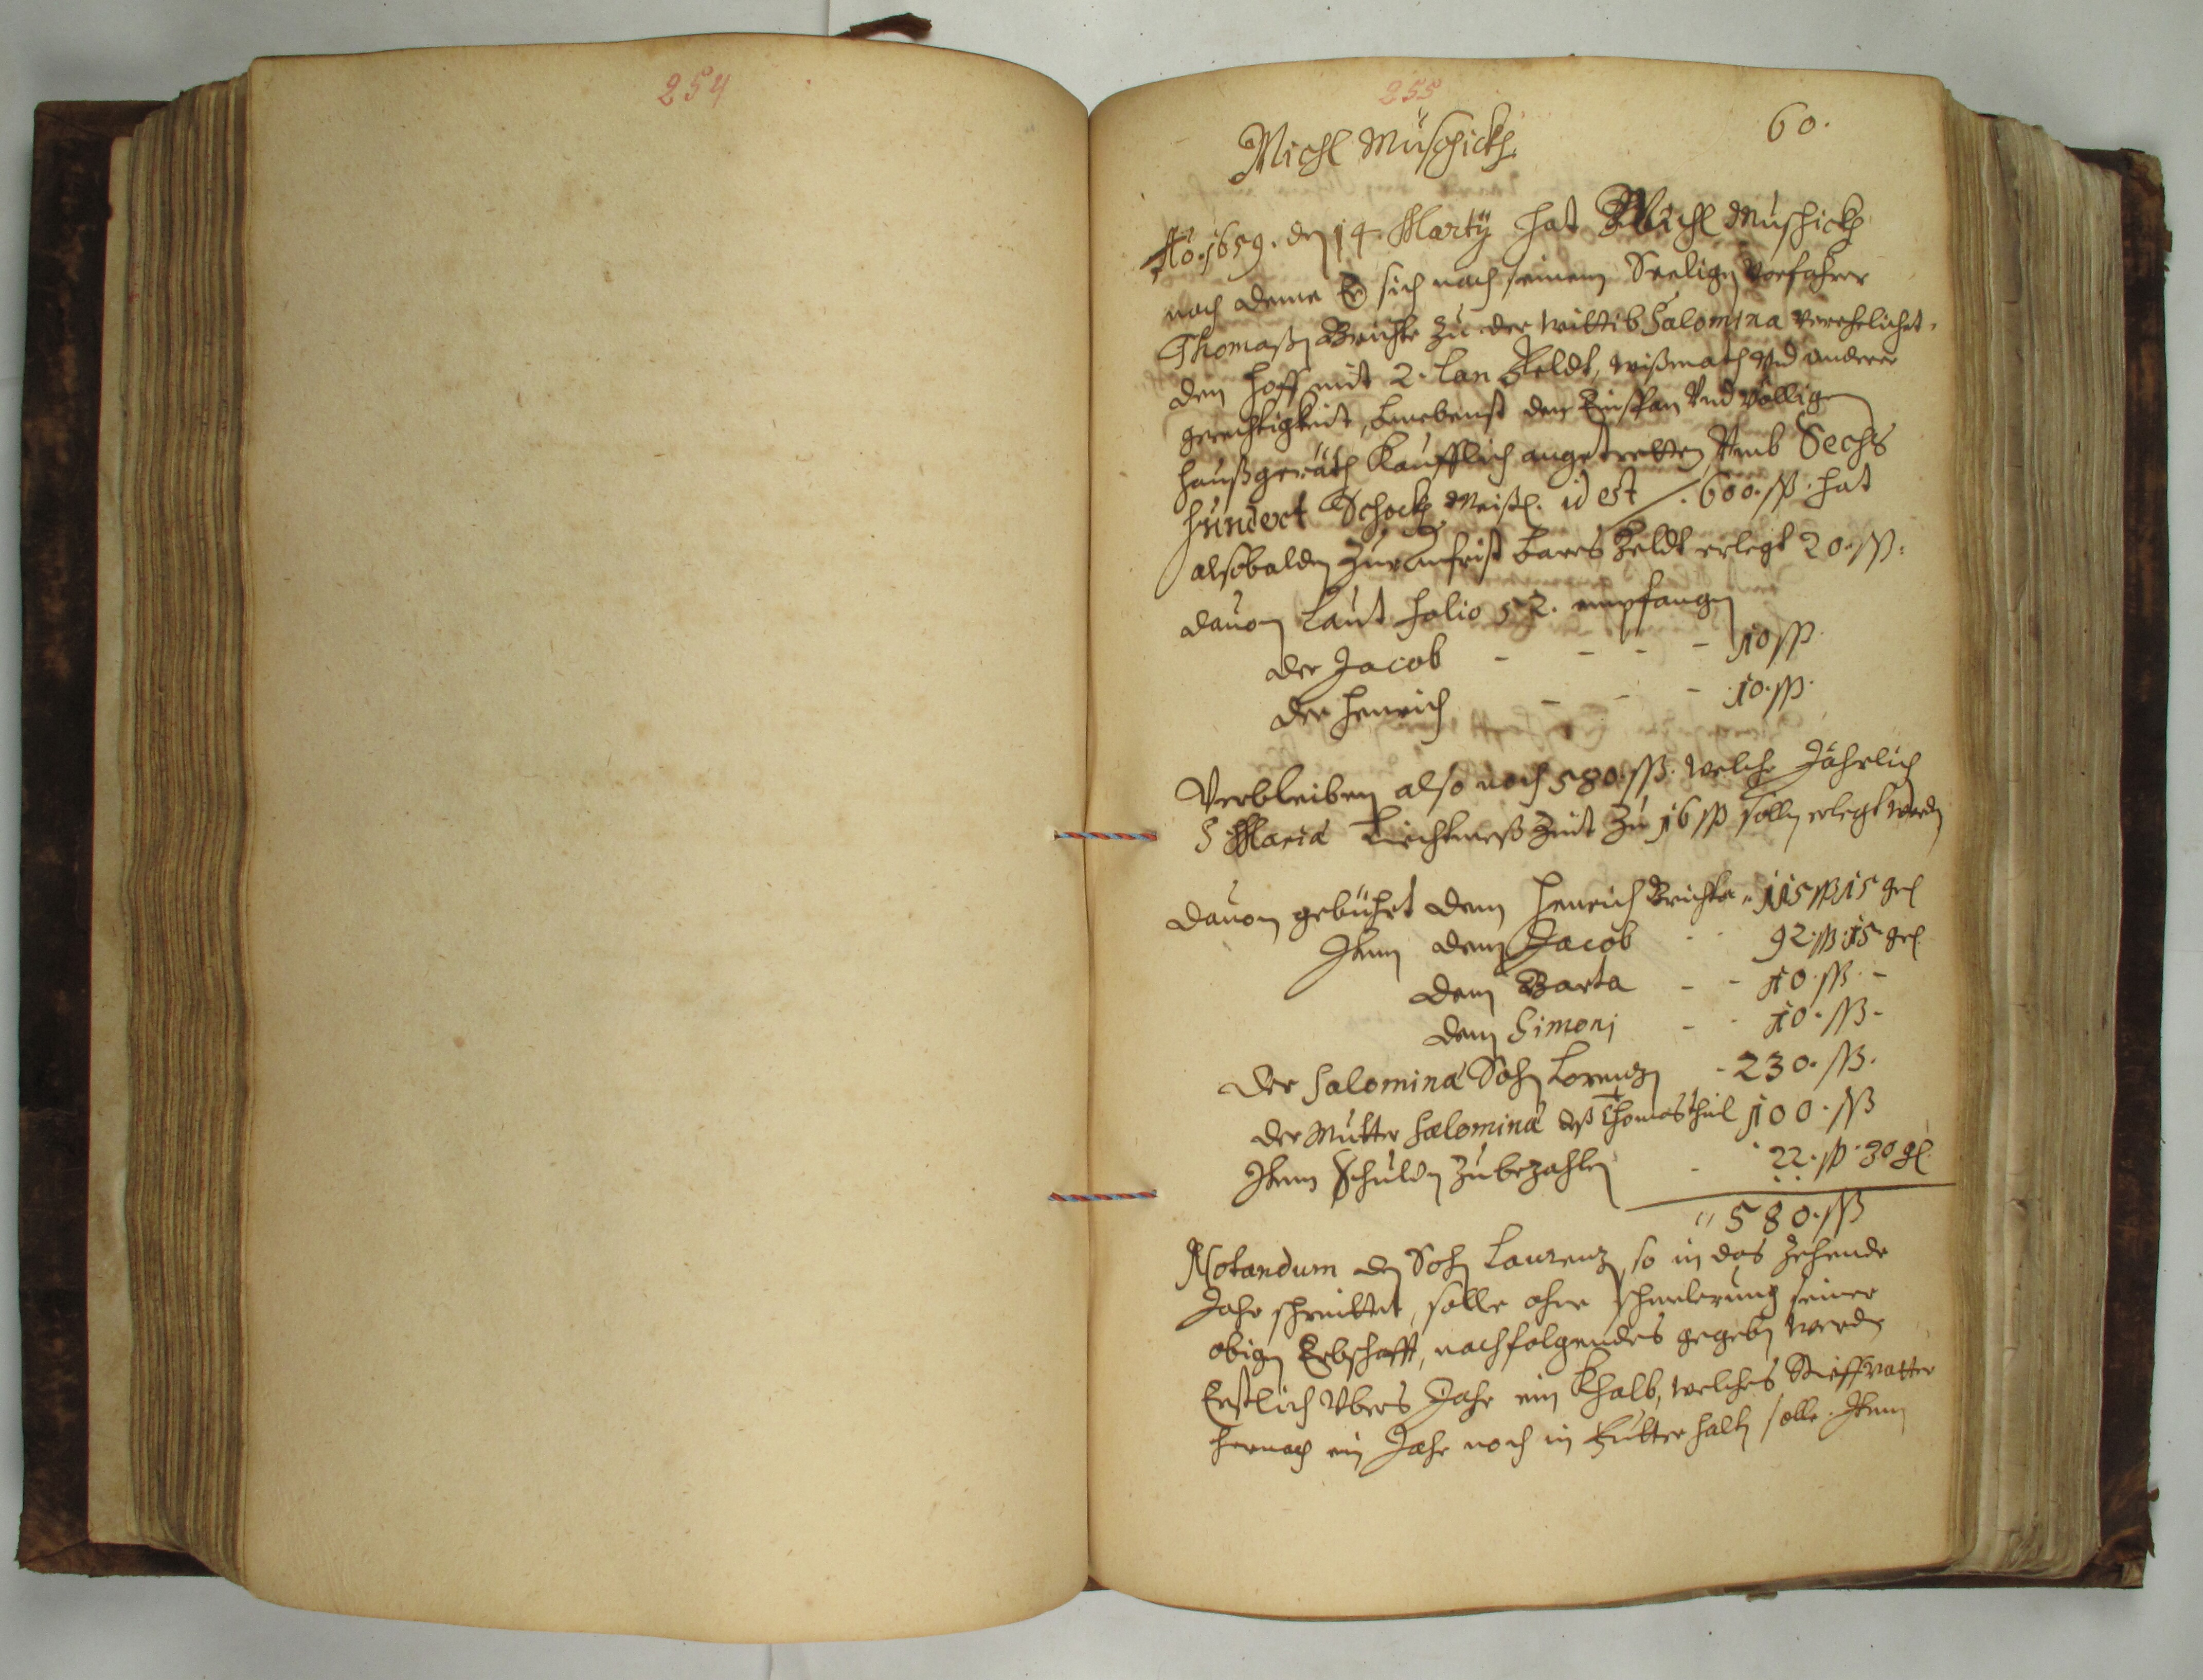 254
255
60.
Michl Muschickh
Aõ. 1659. den 14. Martÿ hat Michl Muschickh
nach deme Er sich nach seinem Seeligen Vorfahrer
Thomaßen Brichte zu der Wittib Salomina Verehelichet,
den Hoff mit 2. Lan Feldt, Wißmath Vnd anderer
gerechtigkeit, benebenst der Einsaan Vnd Völligen
haußgeräth Kaufflich angetretten Vmb Sechs
hundert Schockh Meißl. id est / . 600. ss. hat
alsobalden zur anfrist bares Geldt erlegt 20. ss.
dauon laut folio 52. empfangen
der Jacob - - - - 10 ss.
der Henrich - - - 10. ss.
Verbleiben also noch 580. ss. welche Jährlich
S Maria Liechtmeß Zeit zu 16 ss sollen erlegt werden
dauon gebührt dem Henrich Brichte . 115 ss 15 grl
Item dem Jacob - - 92. ss. 15 grl
dem Barta - - 10. ss. -
dem Simon - - 10. ss. -
der Salomina Sohn Lorentz - 230. ss.
der Mutter Salomina deß Thomas theil 100. ss
Item Schulden zubezahlen - 22. ss. 30 gl
" 580. ss
Notandum den Sohn Laurenz so in das zehende
Jahr schreittet, solle ohne schmelerung seiner
obigen Erbschafft, nachfolgendes gegeben werden
Erstlich Vbers Jahr ein Khalb, welches Stieffvatter
hernach ein Jahr noch in Futter halten solle. Item